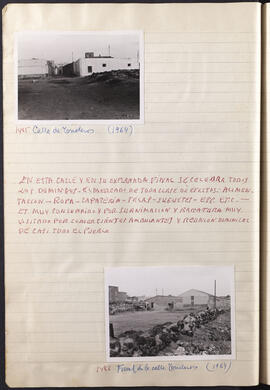 1485 Calle de Toneleros (1964)
EN ESTA CALLE Y EN SU EXPLANADA FINAL SE CELEBRA TODOS
LOS DOMINGOS - EL MERCADO DE TODA CLASE DE EFECTOS: ALIMEN-
TACION - ROPA - ZAPATERIA - TELAS - JUGUETES - ETC. ETC. —
ES MUY CONCURRIDO Y POR SU ANIMACION Y BARATURA MUY
VISITADO POR COMERCIANTES AMBULANTES Y REUNION DOMINICAL
DE CASI TODO EL PUEBLO
1486 Final de la calle Toneleros (1964)